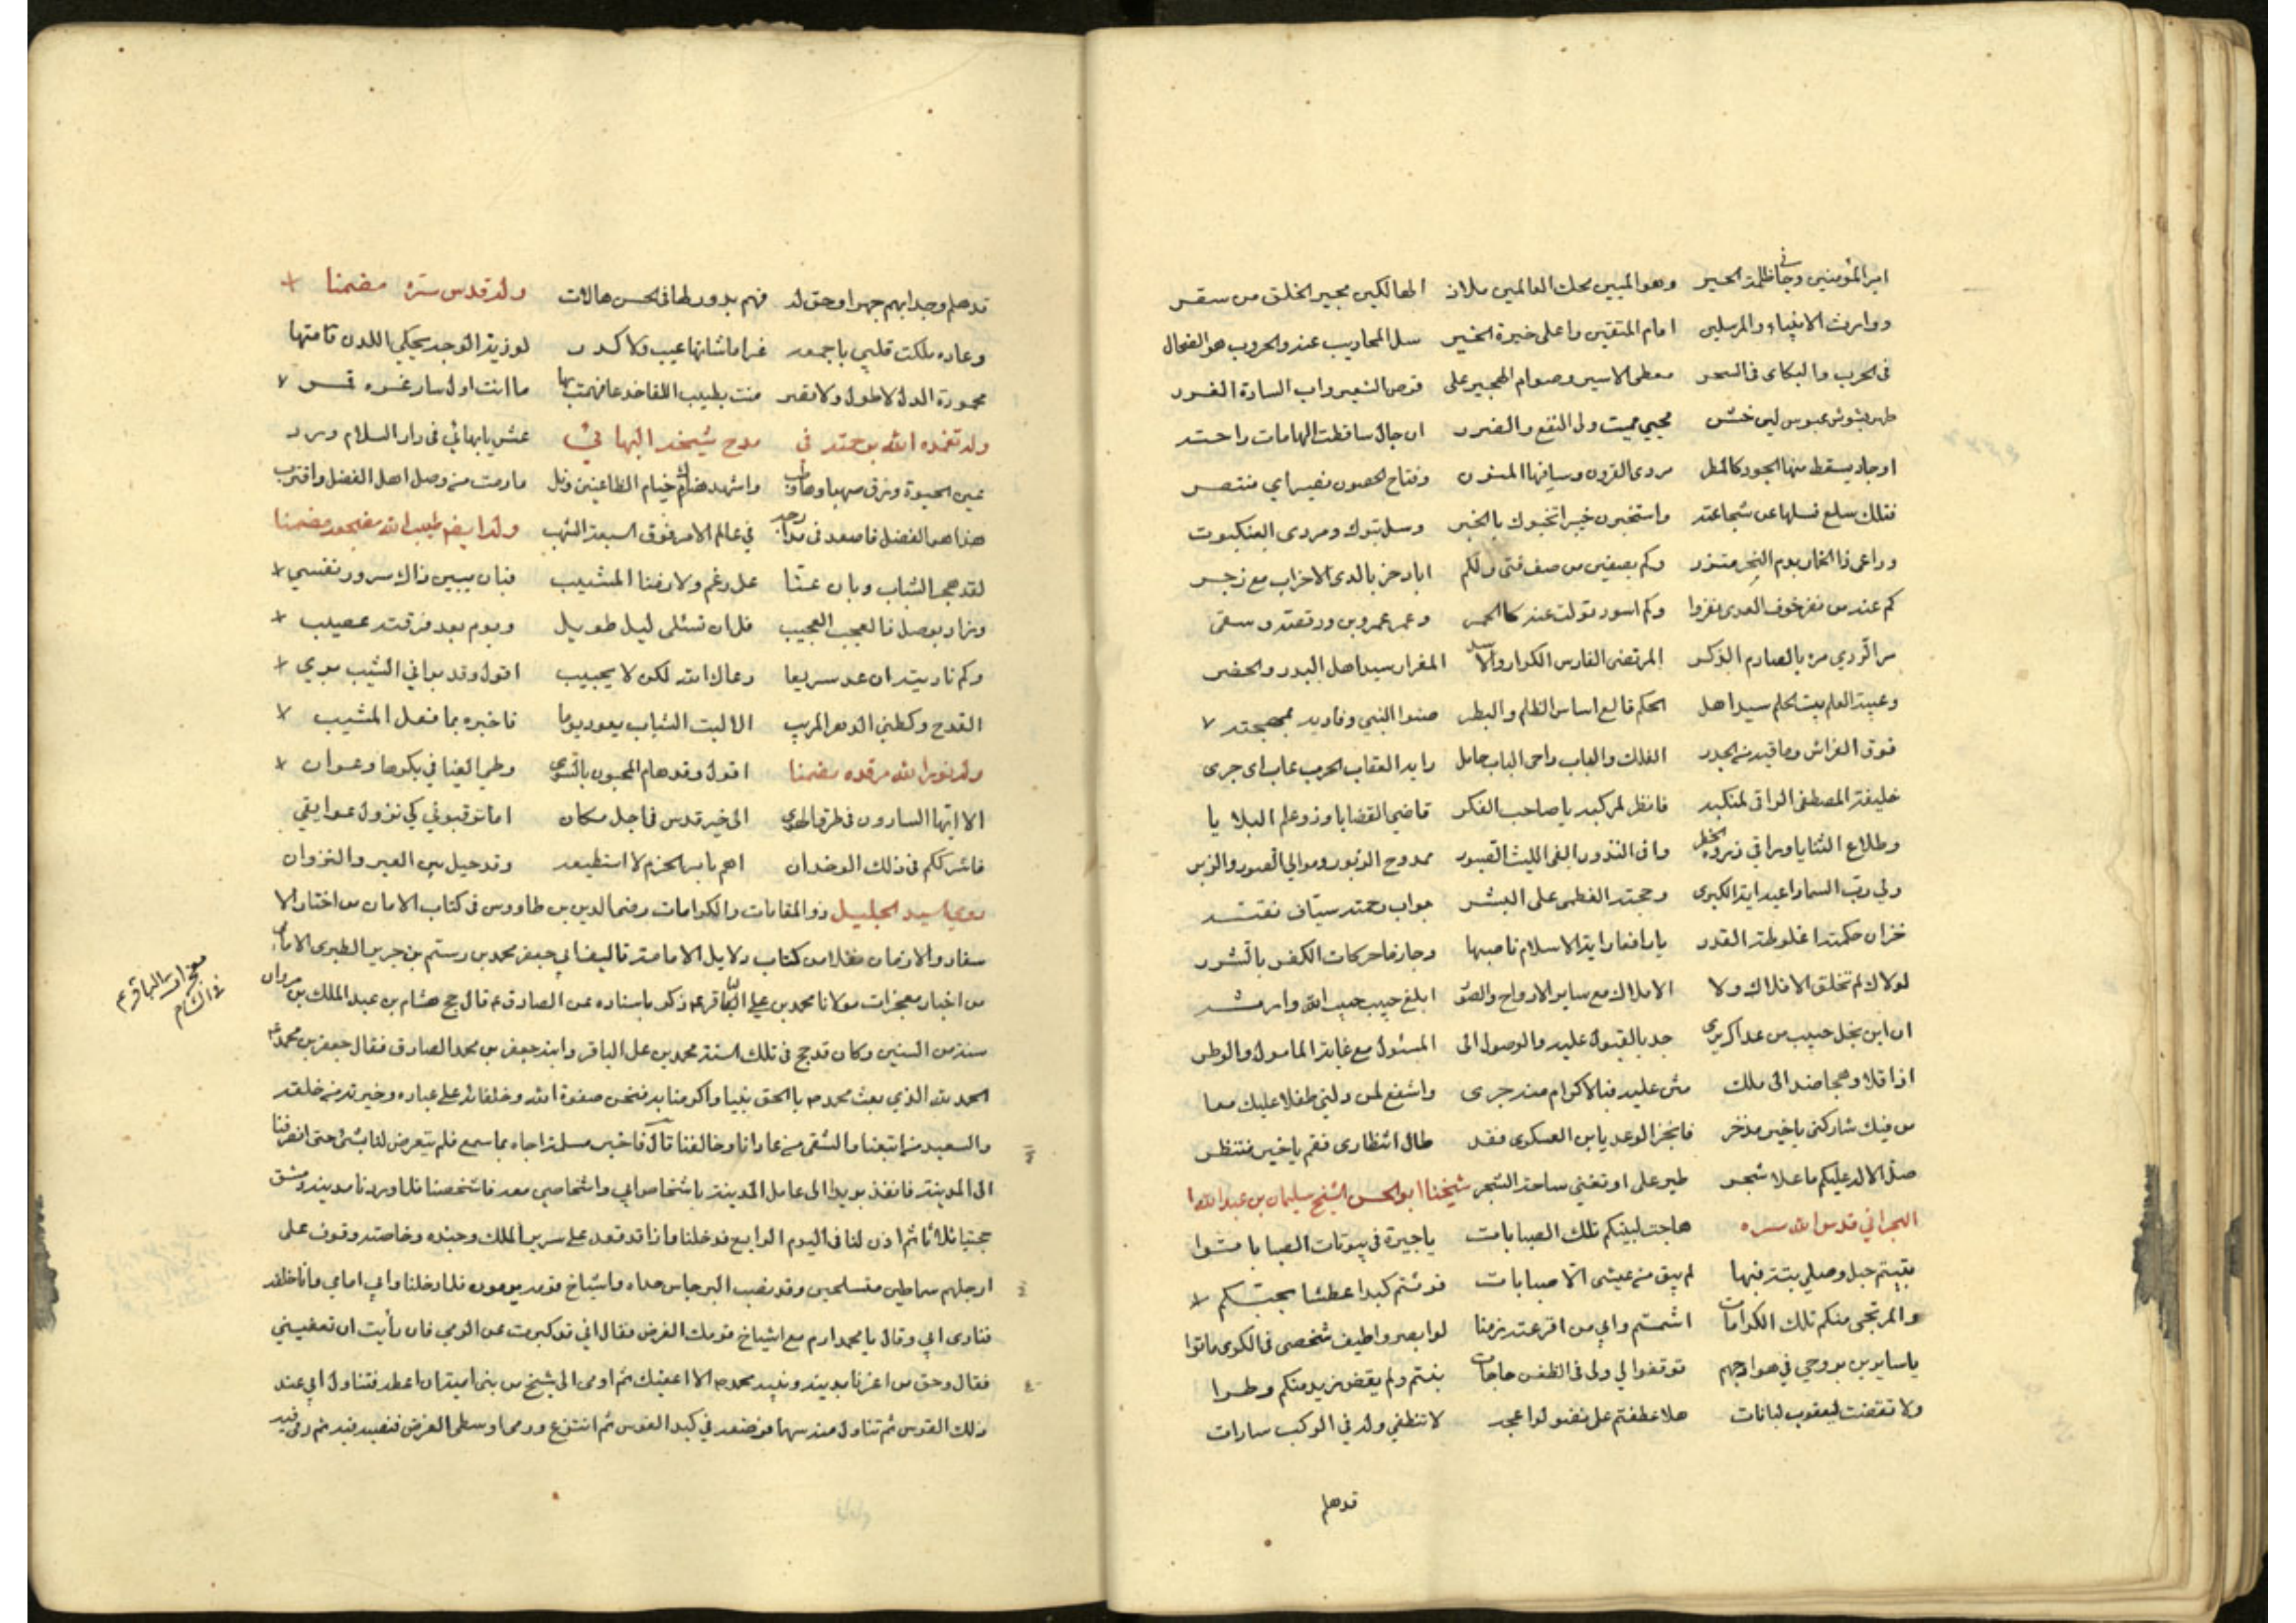 امير المؤمنين وجا في ظلمة الحير وهو المبين محك العالمين ملاذ الهالكين مجير الخلق من سقر
ووارث الانبياء والمرسلين امام المتقين واعلى خيرة الخير سل المحاريب عنه والحروب هو الضحاك
في الحرب والبكاى في السحر معطى الاسير وصوام الهجير على قرص الشعير واب السادة الغرر
طهر بشوش عبوس لين خشن محيي مميت ولى النفع والضرر ان جال ساقطت الهامات راحته
او جاد يسقط منها الجود كالمطر مردى القرون وسافيها المنون وفتاح الحصون نصير اي منتصر
فتلك سلع فسلها عن شجاعته واستخبرن خيبرا تخبرك بالخبر وسل تبوك ومردى العنكبوت
وراعى ذا الخمار يوم النحر وكم بصفين من صف فتى ولكم اباد حزبا لدى الاحزاب مع زجر
كم عنه من نفر خوف العدى نفروا وكم اسود تولت عنه كالحمر وعمر عمرو بن ود قصه وسقى
مر الردي مره بالصارم الذكر المرتضى الفارس الكرار والاسد المغوار سيد اهل البدو والحضر
وعيبة العلم بيت الحلم سيد اهل الحكم قالع اساس الظلم والبطر صنو النبي وفاديه بمهجته
فوق الفراش وما فيه من الحذر الفلك والباب داحى الباب حامل راية العقاب الحرب عاب اى جرى
خليفة المصطفى الراقى لمنكبه فانظر لمركبه يا صاحب الفكر قاضي القضايا وذو علم البلايا
وطلاع الثنايا وراقي ذروة الخطر وافى النذور البقى الليث الهصور ممدوح الزبور وموالي الصور والزبر
ولي رب السما واعبد اية الكبرى وحجته العظمى على البشر
خزان حكمته يا رافعا راية الاسلام ناصبها وجازما حركات الكفر بالشرر
لولاك لم تخلق الافلاك ولا الاملاك مع ساير الارواح والصور ابلغ حبيب حبيب الله
ان ابن نجل حبيب من جد بالقبول عليه والوصول الى المسئول مع غاية المامول والوطر
اذا تلاوها ضيد الى ملك مني عليه فبالاكرام منه جرى واشفع لمن ولني طفلا عليك معا
من فيك شاركني يا خير مدخر فانجز الوعد يا ابن العسكرى فقد طال انتظارى فقم يا خير منتظر
صلى الاله عليكم ما علا شجر طير على او تغنى ساحة الشجر شيخنا ابو الحسن الشيخ سليمان بن عبد الله
البحراني قدس الله سره هاجت لبينكم تلك الصبابات يا جيرة في بيوتات الصبا باتوا
بقيتم حبل وصلي بته فيها لم يبق من عيشى الا صبابات فونتم كبدا عطشا بحبكم
والمرتجى منكم تلك الكرامات اشمتم وابي من اقرعته زمنا لو ابصروا طيف شخصى في الكرى ماتوا
يا سايرين بروحي في هوادجهم توقفوا لي ولى في الظعن حاجات بنتم ولم يقض زيد منكم وطرا
ولا تقضت ليعقوب لبانات هلا عطفتم على نضو لواعجه لا تنطفي وله في الركب سارات
قدهام
قدهام وجدا بهم جهرا وحق له فهم بدور لها في الحسن هالات وله قدس سره مضمنا
وغادة ملكت قلبي باجمعه غراما شانها عيب ولا كدر لو زينة الوجد يحكى اللدن قامتها
مجدورة الدل لا طول ولا قصر منت بطيب اللقا خدعا فهمت بها ما انت اول سار غره قمر
وله تغمده الله برحمته في مدح شيخه البهائي عش يا بهائي في دار السلام ورد
عين الحيوة وذق صهباوها وطب واشهد هناك خيام الظاعنين ونل ما رمت من وصل اهل الفضل واقترب
هذا هو الفضل فاصعد في مدارجه في عالم الامر فوق السبعة الشهب وله ايضا طيب الله مضجعه مضمنا
لقد هجر الشباب وبان عنا على رغم ولازمنا المشيب فبان يبين ذاك سرور نفسي
وزاد بوصل ذا العجب العجيب فلا ان تسئلى ليل طويل ويوم بعد فرقته عصيب
وكم ناديته ان عد سريعا رعاك الله لكن لا يجيب اقول وقد براني الشيب برى
القدح وكظني الدهر المريب الا ليت الشباب يعود يوما فاخبره بما فعل المشيب
وله نور الله مرقده مضمنا اقول وقدهام المحبون بالسوى وطي الفيا في بكرها وعوان
الا ايها السارون في طرق الهوى الى خير قدس في اجل مكان اما ترقبوني كي نزول عوايقي
فاشرككم في ذلك الوخدان اهم بامر الحزم لا استطيعه وقد حيل بين العير والنزوان
روي السيد الجليل ذو المقامات والكرامات رضي الدين بن طاووس في كتاب الامان من اخطار الا
سفار والازمان نقلا من كتاب دلايل الامامة تاليف ابي جعفر محمد بن رستم بن جرير الطبرى الامامي
من اخبار معجزات مولانا محمد بن علي الباقر ع ذكر باسناده عن الصادق ع قال حج هشام بن عبد الملك بن مروان
سنة من السنين وكان قد حج في تلك السنة محمد بن على الباقر وابنه جعفر بن محمد الصادق فقال جعفر بن محمد ع
الحمد لله الذي بعث محمد ص بالحق نبيا واكرمنا به فنحن صفوة الله وخلفائه على عباده وخيرته من خلقه
والسعيد من اتبعنا والشقى من عادانا وخالفنا ثم قال فاخبر مسلمة اخاه بما سمع فلم يتعرض لنا بشئ حتى انصرفنا
الى المدينة فانفذ بريدا الى عامل المدينة باشخاص ابي واشخاصي معه فاشخصنا فلما وردنا مدينة دمشق
حجبنا ثلاثا ثم اذن لنا في اليوم الرابع فدخلنا واذا قد قعد على سرير الملك وجنده وخاصته وقوف على
ارجلهم سماطين متسلحين وقد نصب البرجاس حذاه واشياخ قومه يرمون فلما دخلنا وابي امامي وانا خلفه
فنادى ابي وقال يا محمد ارم مع اشياخ قومك الغرض فقال اني قد كبرت عن الرمي فان رأيت ان تعفيني
فقال وحق من اعزنا بدينه ونبيه محمد ص لا اعفيك ثم اومى الى شيخ من بنى امية ان اعطه فتناول ابي عند
ذلك القوس ثم تناول منه سهما فوضعه في كبد القوس ثم انتزع ورمى وسطى الغرض فنصبه فيه ثم رمى فيه
معجزات الباقر ع
في الشام